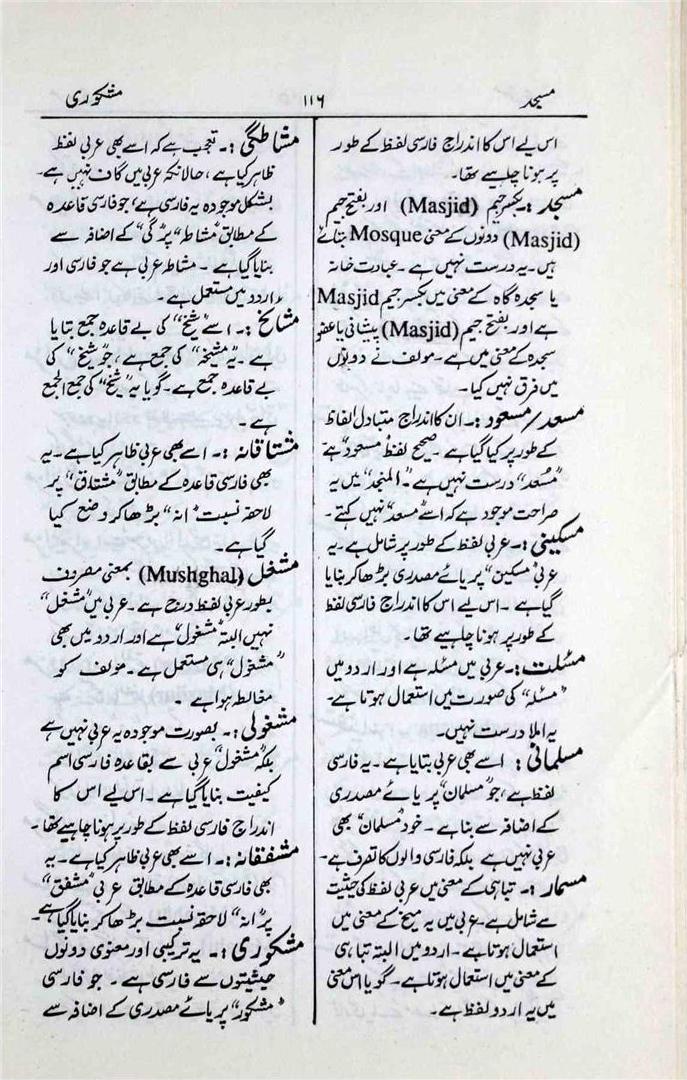 مسجد
۱۱۶
مشکوری
اس لیے اس کا اندراج فارسی لفظ کے طور
پر ہونا چاہیے تھا۔
مسجد :۔ بکسر جیم (Masjid) اور بفتح جیم
(Masjid) دونوں کے معنی Mosque بتائے
ہیں۔ یہ درست نہیں ہے۔ عبادت خانہ
یا سجدہ گاہ کے معنی میں بکسر جیم Masjid
ہے اور بفتح جیم (Masjid) پیشانی یا عضو
سجدہ کے معنی میں ہے۔ مولف نے دونوں
میں فرق نہیں کیا۔
مسعد / مسعود :۔ ان کا اندراج متبادل الفاظ
کے طور پر کیا گیا ہے۔ صحیح لفظ "مسعود" ہے
"مُسعد" درست نہیں ہے۔ "المنجد" میں یہ
صراحت موجود ہے کہ اسے "مسعد" نہیں کہتے۔
مسکینی :۔ عربی لفظ کے طور پر شامل ہے۔ یہ
عربی "مسکین" پر یائے مصدری بڑھا کر بنایا
گیا ہے۔ اس لیے اس کا اندراج فارسی لفظ
کے طور پر ہونا چاہیے تھا۔
مسئلت :۔ عربی میں مسئلہ ہے اور اردو میں
"مسئلہ" کی صورت میں استعمال ہوتا ہے۔
یہ املا درست نہیں۔
مسلمانی : اسے بھی عربی بتایا ہے۔ یہ فارسی
لفظ ہے، جو "مسلمان" پر یائے مصدری
کے اضافہ سے بنا ہے۔ خود "مسلمان" بھی
عربی نہیں ہے بلکہ فارسی والوں کا تصرف ہے۔
مسمار :۔ تباہی کے معنی میں عربی لفظ کی حیثیت
سے شامل ہے۔ عربی میں یہ میخ کے معنی میں
استعمال ہوتا ہے۔ اردو میں البتہ تباہی
کے معنی میں استعمال ہوتا ہے۔ گویا اس معنی
میں یہ اردو لفظ ہے۔
مشاطگی :۔ تعجب ہے کہ اسے بھی عربی لفظ
ظاہر کیا ہے، حالانکہ عربی میں گاف نہیں ہے۔
بشکل موجودہ یہ فارسی ہے، جو فارسی قاعدہ
کے مطابق "مشاطہ" پر "گی" کے اضافہ سے
بنایا گیا ہے۔ مشاطہ عربی ہے جو فارسی اور
اردو میں مستعمل ہے۔
مشائخ :۔ اسے "شیخ" کی بے قاعدہ جمع بتایا
ہے۔ یہ "مشیخہ" کی جمع ہے، جو "شیخ" کی
بے قاعدہ جمع ہے۔ گویا یہ "شیخ" کی جمع الجمع
ہے۔
مشتاقانہ :۔ اسے بھی عربی ظاہر کیا ہے۔ یہ
بھی فارسی قاعدہ کے مطابق "مشتاق" پر
لاحقہ نسبت "انہ" بڑھا کر وضع کیا
گیا ہے۔
مشغل (Mushghal) بمعنی مصروف
بطور عربی لفظ درج ہے۔ عربی میں "مشغل"
نہیں البتہ "مشغول" ہے اور اردو میں بھی
"مشغول" ہی مستعمل ہے۔ مولف کو
مغالطہ ہوا ہے۔
مشغولی :۔ بصورت موجودہ یہ عربی نہیں ہے
بلکہ "مشغول" عربی سے بقاعدہ فارسی اسم
کیفیت بنایا گیا ہے۔ اس لیے اس کا
اندراج فارسی لفظ کے طور پر ہونا چاہیے تھا۔
مشفقانہ :۔ اسے بھی عربی ظاہر کیا ہے۔ یہ
بھی فارسی قاعدہ کے مطابق عربی "مشفق"
پر "انہ" لاحقہ نسبت بڑھا کر بنایا گیا ہے۔
مشکوری :۔ یہ ترکیبی اور معنوی دونوں
حیثیتوں سے فارسی ہے۔ جو فارسی
"مشکور" پر یائے مصدری کے اضافہ سے